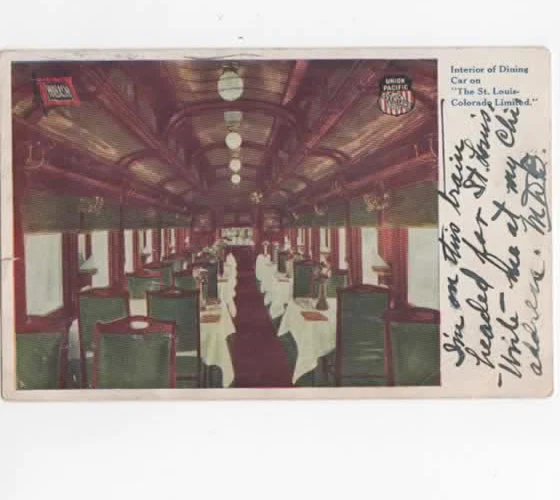 WABASH
UNION
PACIFIC
Interior of Dining
Car on
"The St. Louis-
Colorado Limited."
I'm on this train
headed for St. Louis
-Write me at my Chi
address. M.D.D.